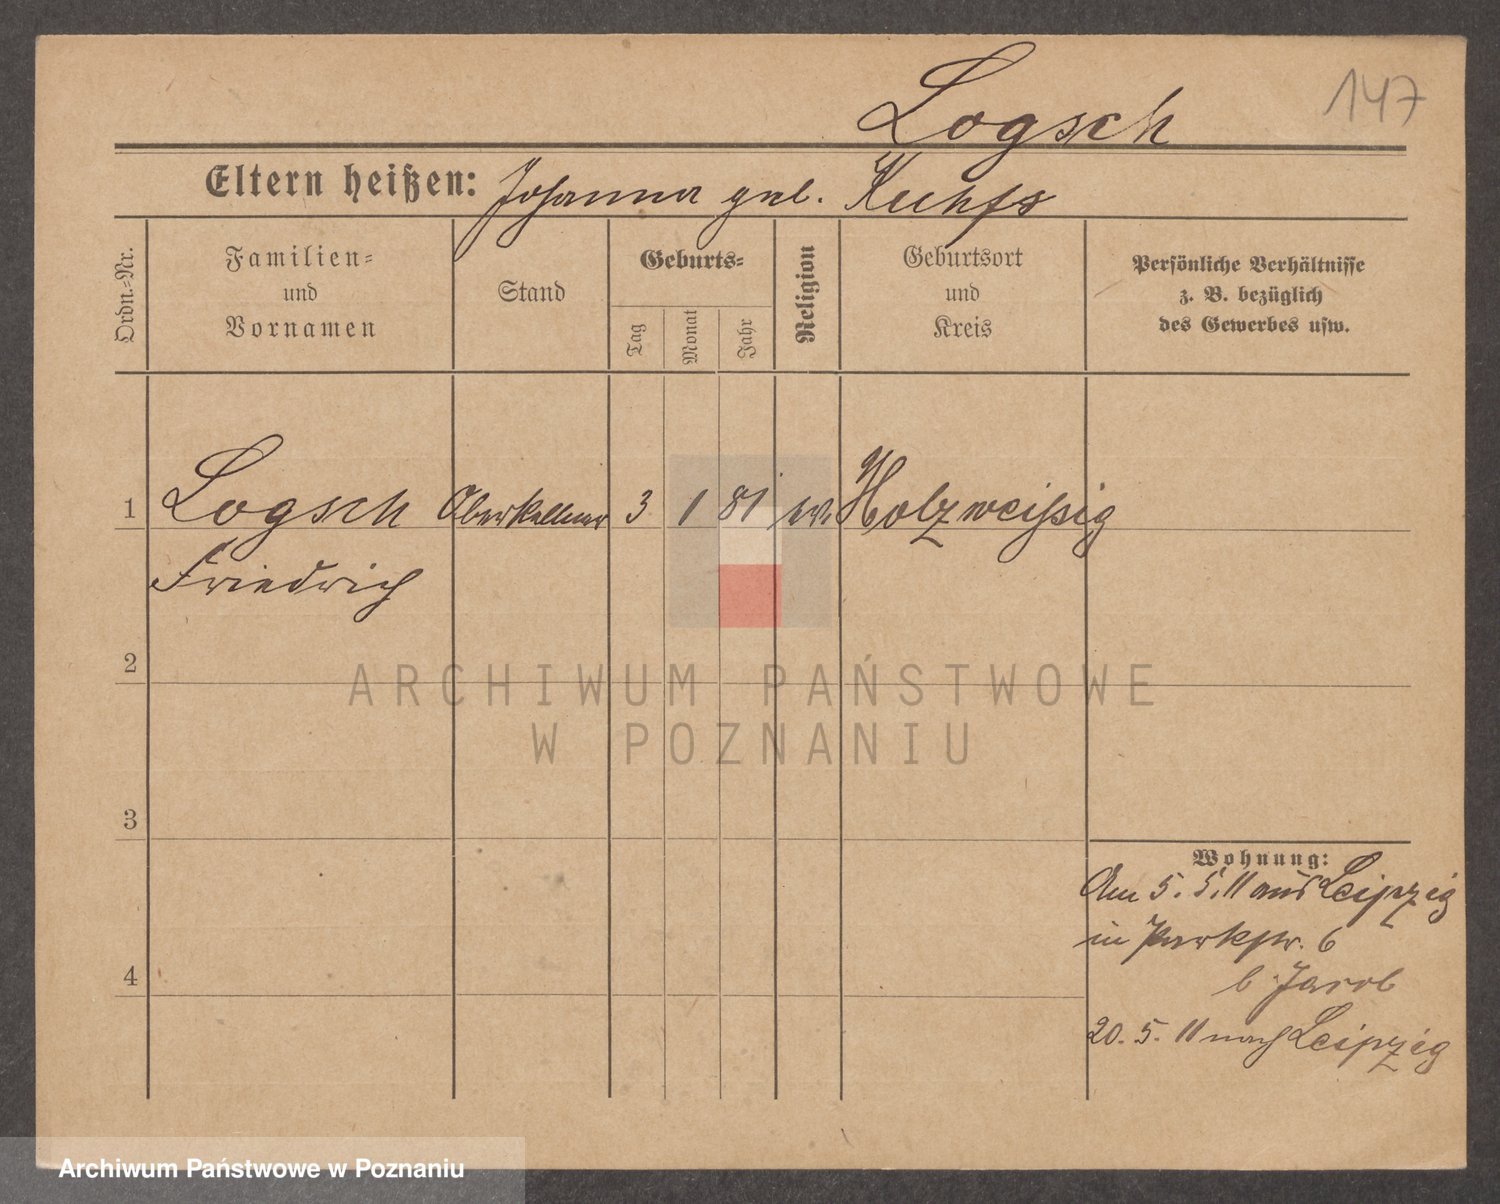 Logsch
147
Eltern heißen: Johanna geb.
Ordn.-Nr.
Familien-
und
Vornamen
Stand
Geburts-
Tag
Monat
Jahr
Religion
Geburtsort
und
Kreis
Persönliche Verhältnisse
z. B. bezüglich
des Gewerbes usw.
1 Logsch Oberkellner 3 1 81 ev. Holzweißig
Friedrich
2
ARCHIWUM PAŃSTWOWE
W POZNANIU
3
Wohnung:
Am 5. 5. 11 aus Leipzig
in Parkstr. 6
4
b. Jacob
20. 5. 11 nach Leipzig
Archiwum Państwowe w Poznaniu